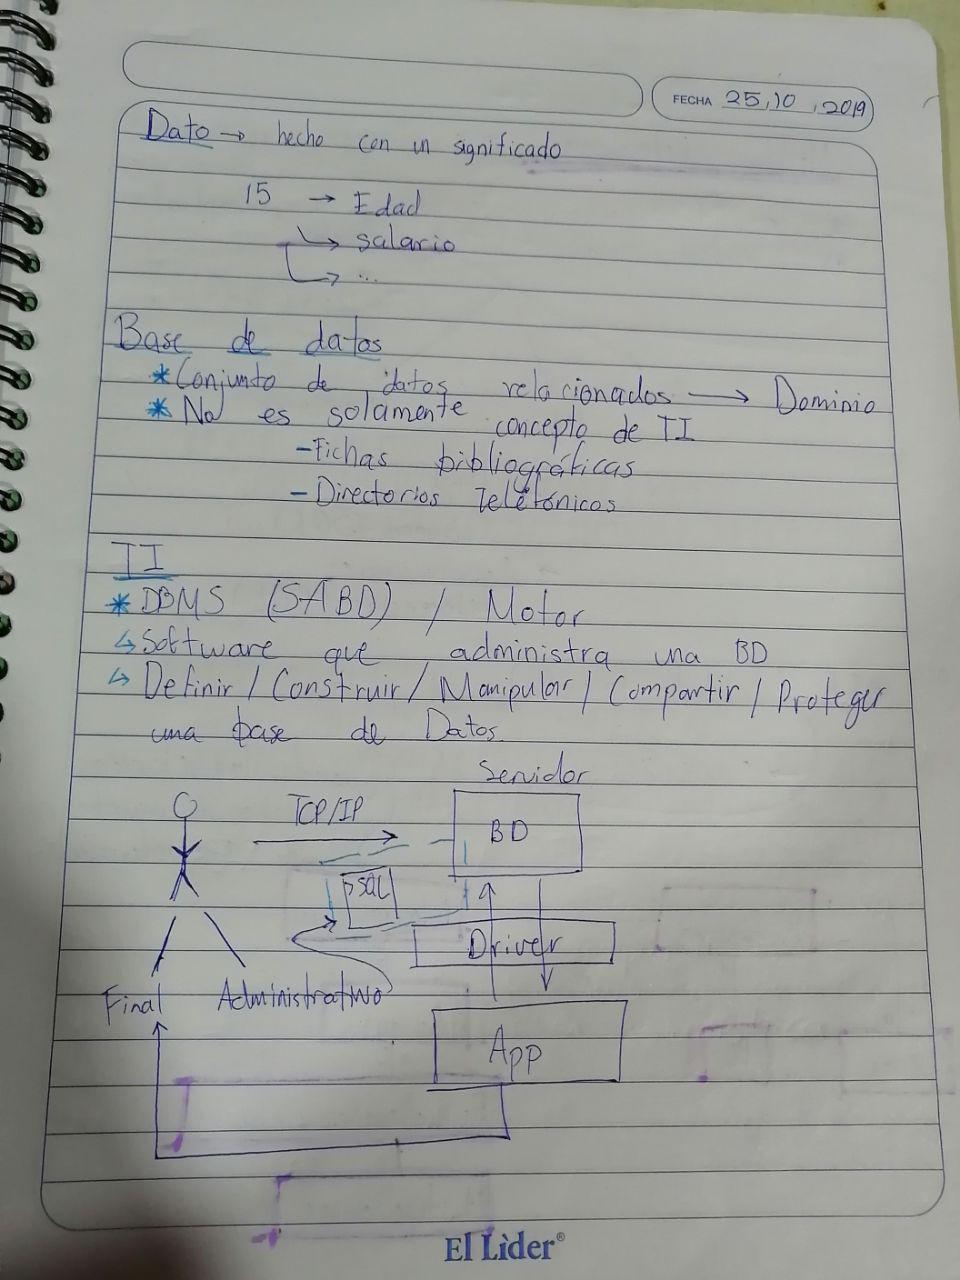 FECHA 25,10,2019
Dato → hecho con un significado
15 → Edad
↳ salario
↳ ...
Base de datos
* Conjunto de datos relacionados → Dominio
* No es solamente concepto de TI
- Fichas bibliográficas
- Directorios Telefónicos
TI
* DBMS (SABD) / Motor
↳ Software que administra una BD
↳ Definir / Construir / Manipular / Compartir / Proteger
una base de Datos
Servidor
TCP/IP
BD
psql
Driver
Final Administrativo
App
El Lìder®